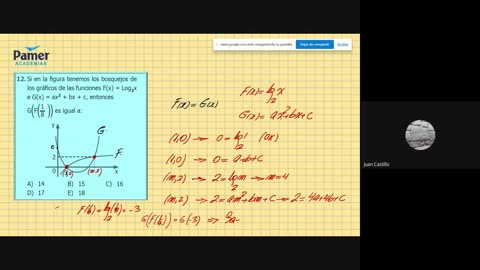 Pamer
ACADEMIAS
meet.google.com está compartiendo tu pantalla.
Dejar de compartir
Ocultar
12. Si en la figura tenemos los bosquejos de
los gráficos de las funciones F(x) = Log₂x
e G(x) = ax² + bx + c, entonces
G(F(1/8)) es igual a:
y
G
c
2
F
(1,0)
(m,2)
x
A) 14 B) 15 C) 16
D) 17 E) 18
F(x) = G(x)
F(x) = log₂ x
G(x) = ax² + bx + c
(1,0) → 0 = log₂ 1 (OK)
(1,0) → 0 = a+b+c
(m,2) → 2 = log₂ m → m = 4
(m,2) → 2 = am² + bm + c → 2 = 4a+4b+c
F(1/8) = log₂(1/8) = -3
G(F(1/8)) = G(-3) ⇒
Juan Castillo